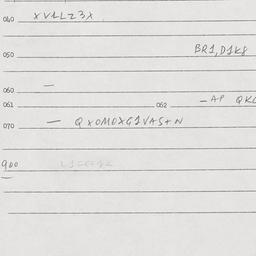 040 XVLLZ3X
050 BR1,D1K8
060 —
061 062 — AP QKL
070 — QXOMOXG1VAS+N
900